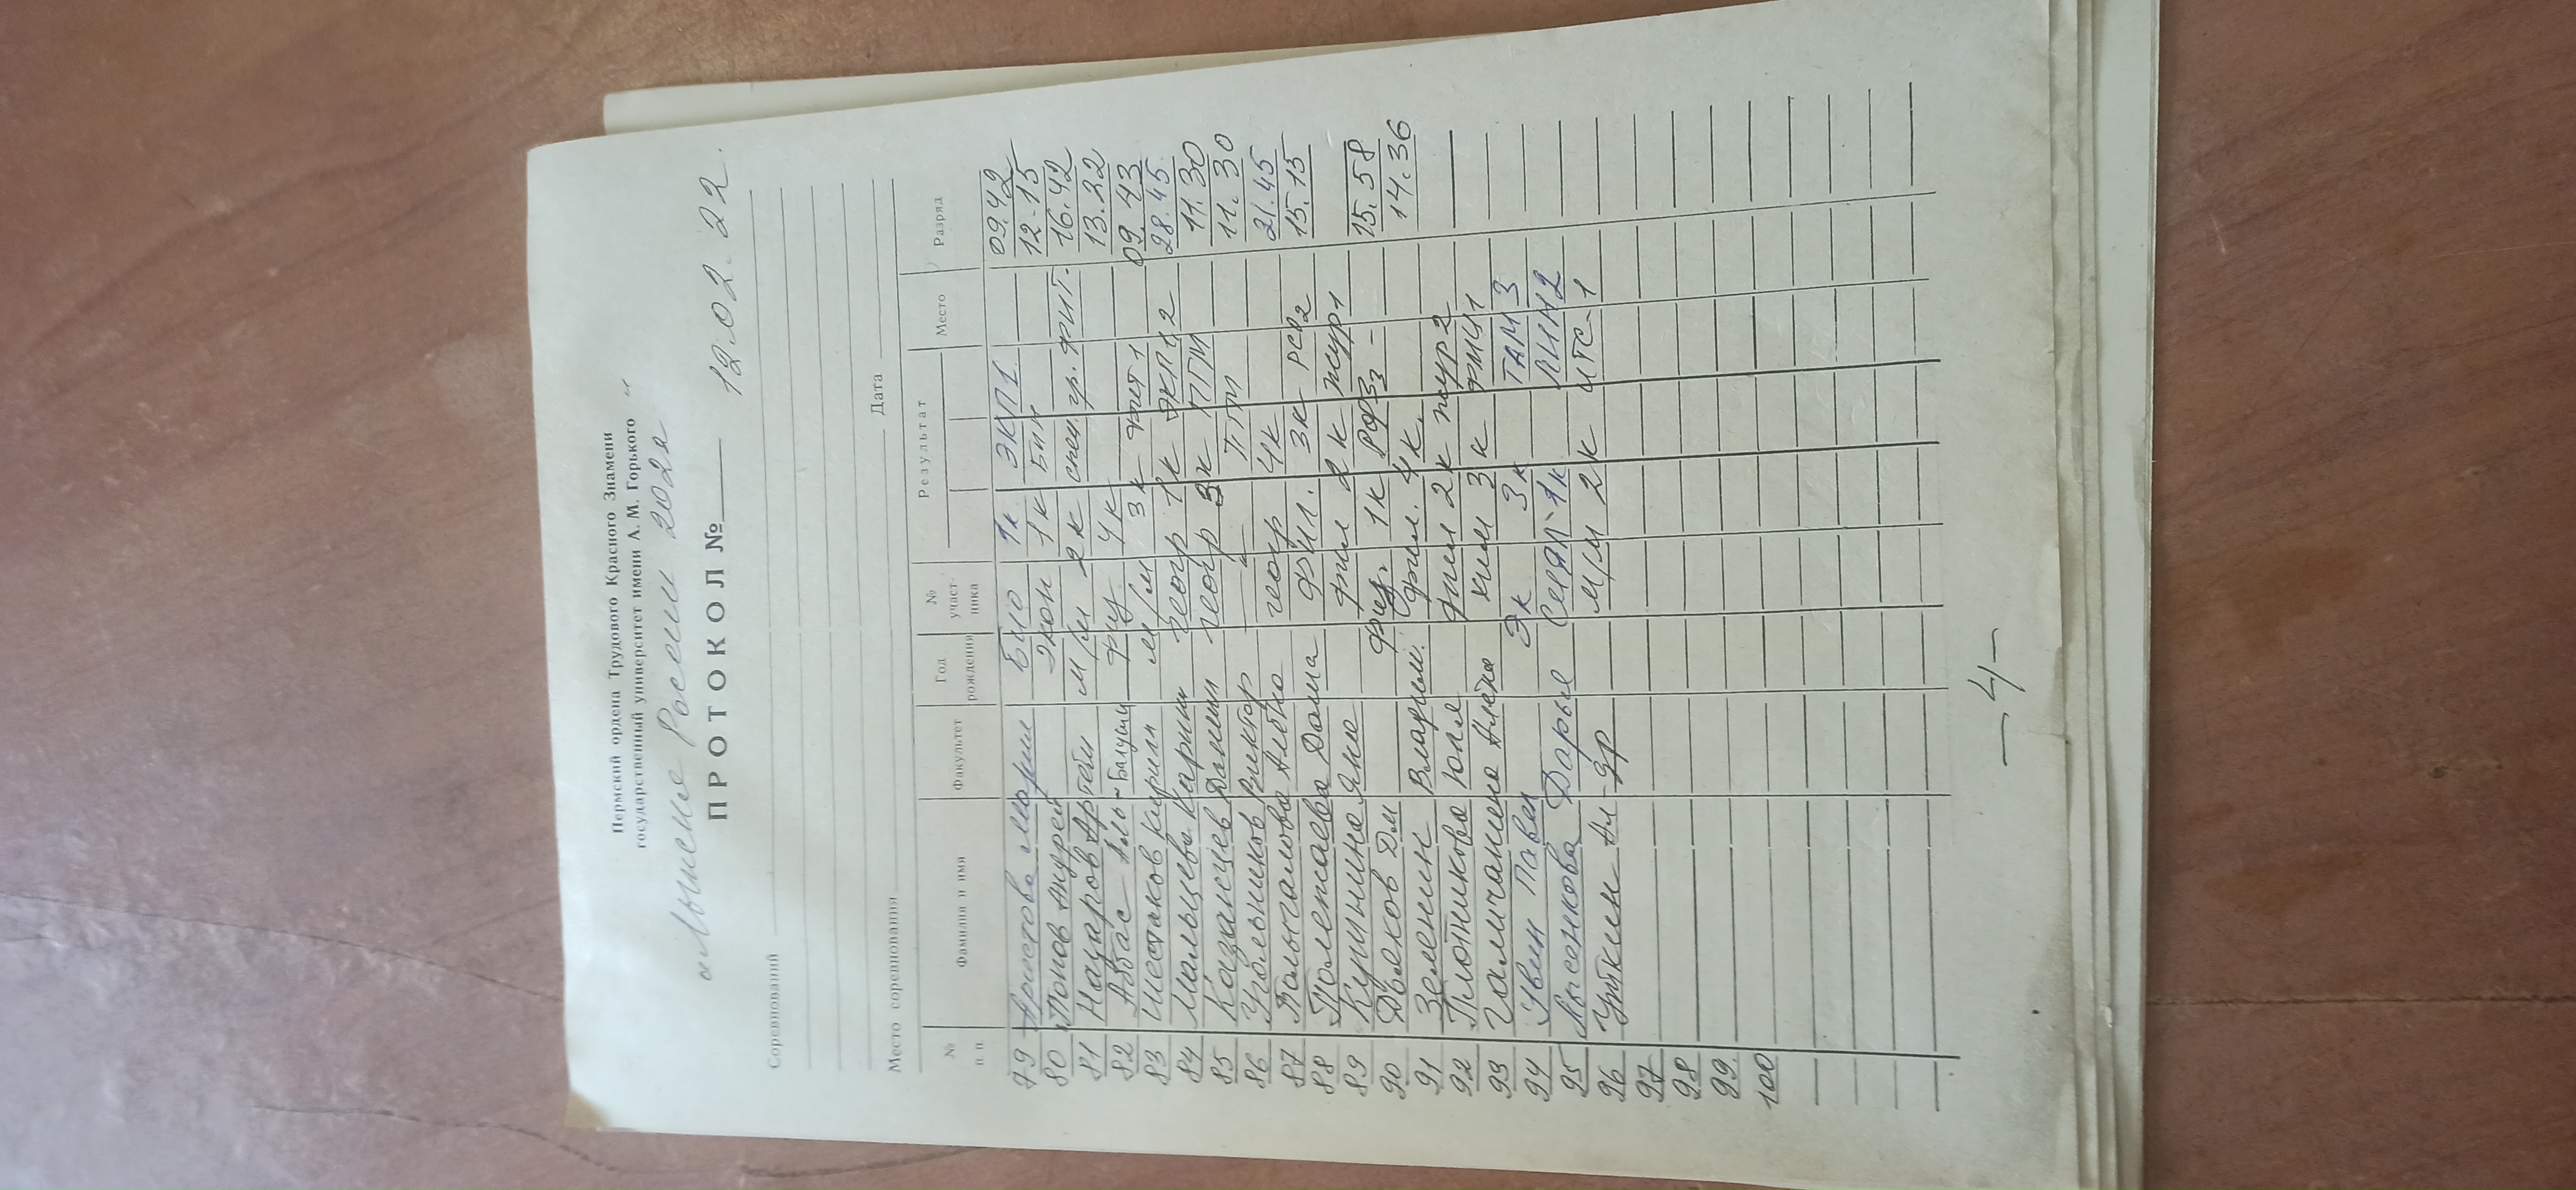 Пермский ордена Трудового Красного Знамени
государственный университет имени А. М. Горького
«Лыжня России 2022»
ПРОТОКОЛ №
12.02.22.
Соревнований
Место соревнования Дата
№ п. п. Фамилия и имя Факультет Год рождения № участ-ника Результат Место Разряд
79 Аристова Мария БИО 1к ЭКП1 09.42
80 Попов Андрей Экон 1к БИН 12-15
81 Назаров Артём м/м 2к спец. гр. ФИТ. 16.42
82 Аббас Аль-Балуши физ 4к 13.22
83 Шестаков Кирилл м/м 3к ФИТ1 09.43
84 Мальцева Карина геогр 1к ЭКП1,2 28.45
85 Казанцев Даниил геогр 3к ПГМ 11.30
86 Угольников Виктор –"– ПГМ 11.30
87 Полыгалова Алёна геогр 4к 21.45
88 Полетаева Даша фил. 3к РСО2 15.15
89 Яна фил 2к жур1
90 Дьяков Дм физ. 1к – 15.58
91 Зеленин Владим. фил. 4к. 14.36
92 Плотникова Юля фил 2к жур2
93 Галичанина Алёна хим 3к ФМЧ1
94 Увин Павел Эк 3к ТАМ3
95 Лысенкова Дарья СИЯЛ 1к ЛИН2
96 Уткин Ал-др м/м 2к ИТС-1
97
98
99.
100
–4–